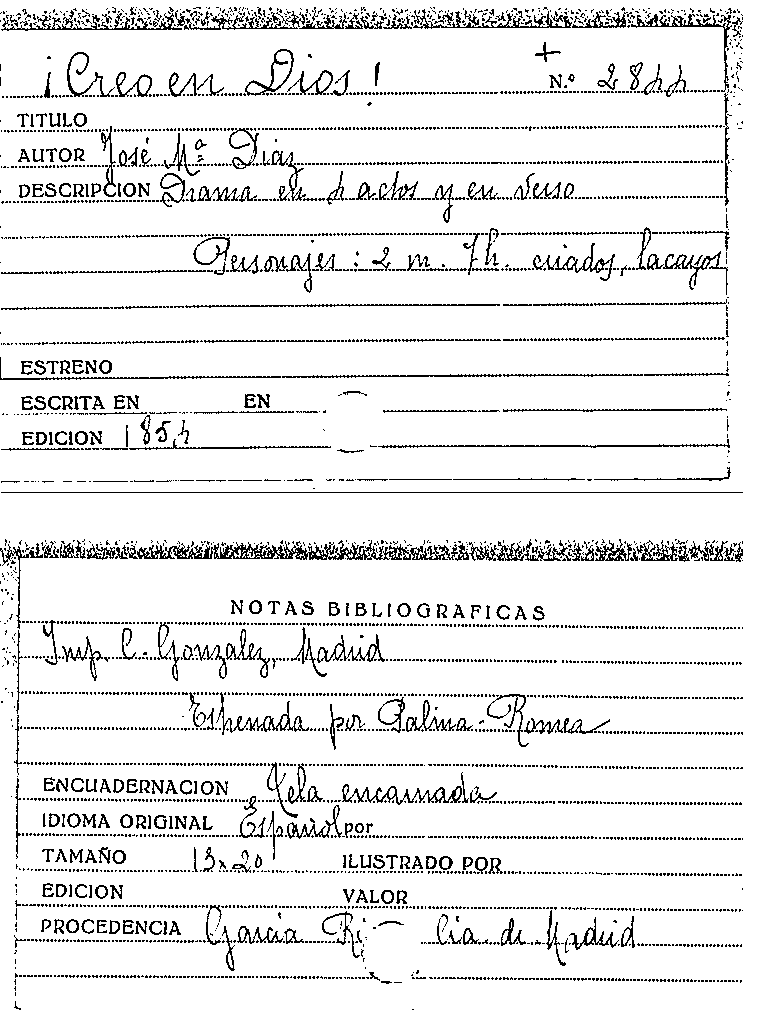 ¡Creo en Dios!
+
N.º 2844
TITULO
AUTOR José Mª Díaz
DESCRIPCION Drama en 4 actos y en verso
Personajes: 2 m. 7 h. criados, lacayos
ESTRENO
ESCRITA EN EN
EDICION 1854
NOTAS BIBLIOGRAFICAS
Imp. C. Gonzalez, Madrid
Estrenada por Palma-Romea
ENCUADERNACION Tela encarnada
IDIOMA ORIGINAL Español por
TAMAÑO 13x20 ILUSTRADO POR
EDICION VALOR
PROCEDENCIA García de Madrid